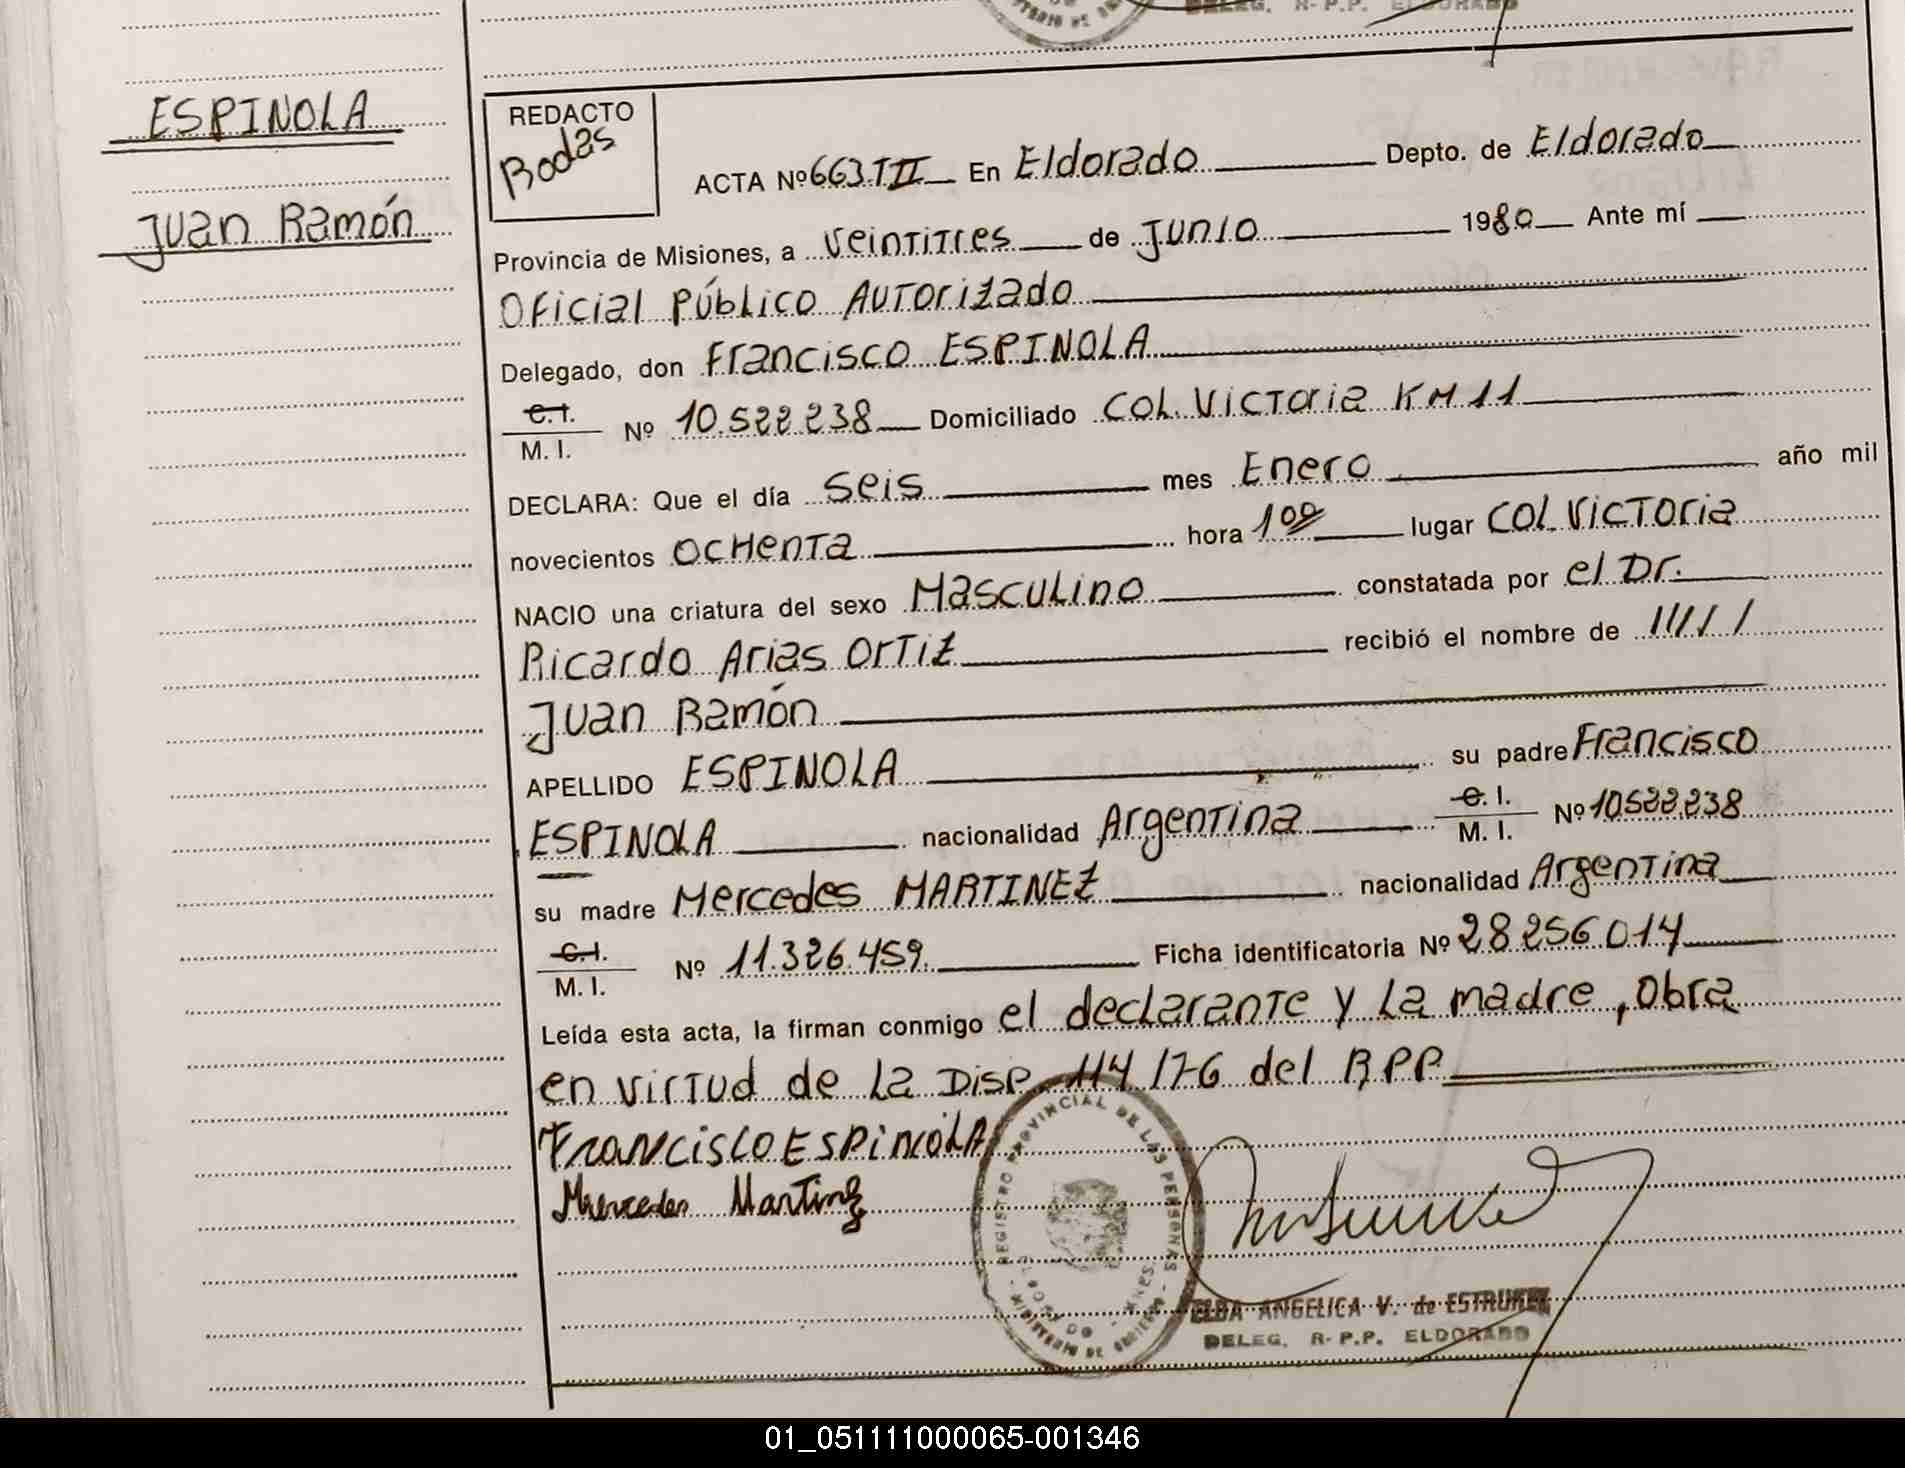 DELEG. R-P.P. ELDORADO
ESPINOLA
Juan Ramón
REDACTO
Rodas
ACTA Nº 663 TII En Eldorado Depto. de Eldorado
Provincia de Misiones, a Veintitres de Junio 1980 Ante mí
Oficial Público Autorizado
Delegado, don Francisco ESPINOLA
C.I. M.I. Nº 10.522.238 Domiciliado COL. Victoria KM 11
DECLARA: Que el día Seis mes Enero año mil
novecientos OCHENTA hora 1 00 lugar COL. VICTORIA
NACIO una criatura del sexo Masculino constatada por el Dr.
Ricardo Arias Ortiz recibió el nombre de /////
Juan Ramón
APELLIDO ESPINOLA su padre Francisco
ESPINOLA nacionalidad Argentina C.I. M.I. Nº 10.522.238
su madre Mercedes MARTINEZ nacionalidad Argentina
C.I. M.I. Nº 11.326.459. Ficha identificatoria Nº 28 256 014
Leída esta acta, la firman conmigo el declarante y la madre, obra
en virtud de la Disp. 114/76 del R.P.P.
FRANCISCO ESPINOLA
Mercedes Martinez
REGISTRO PROVINCIAL DE LAS PERSONAS
MINISTERIO DE GOBIERNO
ELBA ANGELICA V. de
DELEG. R-P.P. ELDORADO
01_051111000065-001346